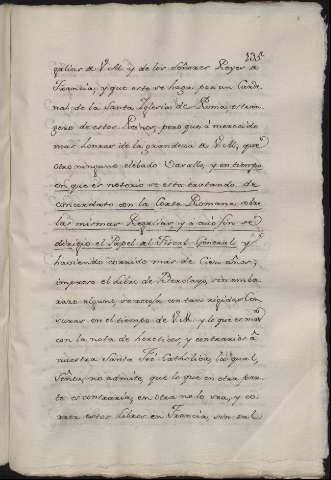 135
galias de V.M. y de los Señores Reyes de
Francia, y que esto se haga por un Carde-
nal de la Santa Iglesia de Roma, estran-
gero de estos Reinos, pero que á merecido
mas honrras de la grandeza de V.M. que
otro ninguno elebado Vasallo, y en tiempo
en que es notorio se esta tratando de
concordato con la Corte Romana sobre
las mismas Regalias, y á cuio fin se
dirigió el Papel del Fiscal General, y
haviendo corrido mas de Cien años,
impreso el Libro de Barclayo, sin emba-
razo alguno, se recoja con tan rigidas Cen-
suras en el tiempo de V.M. y lo que es mas
con la nota de hereticos, y contrarios á
nuestra Santa Fé Catholica, la qual,
Señor, no admite que lo que en otra par-
te es contraria, en otra no lo sea, y co-
rren estos libros en Francia, sin tal